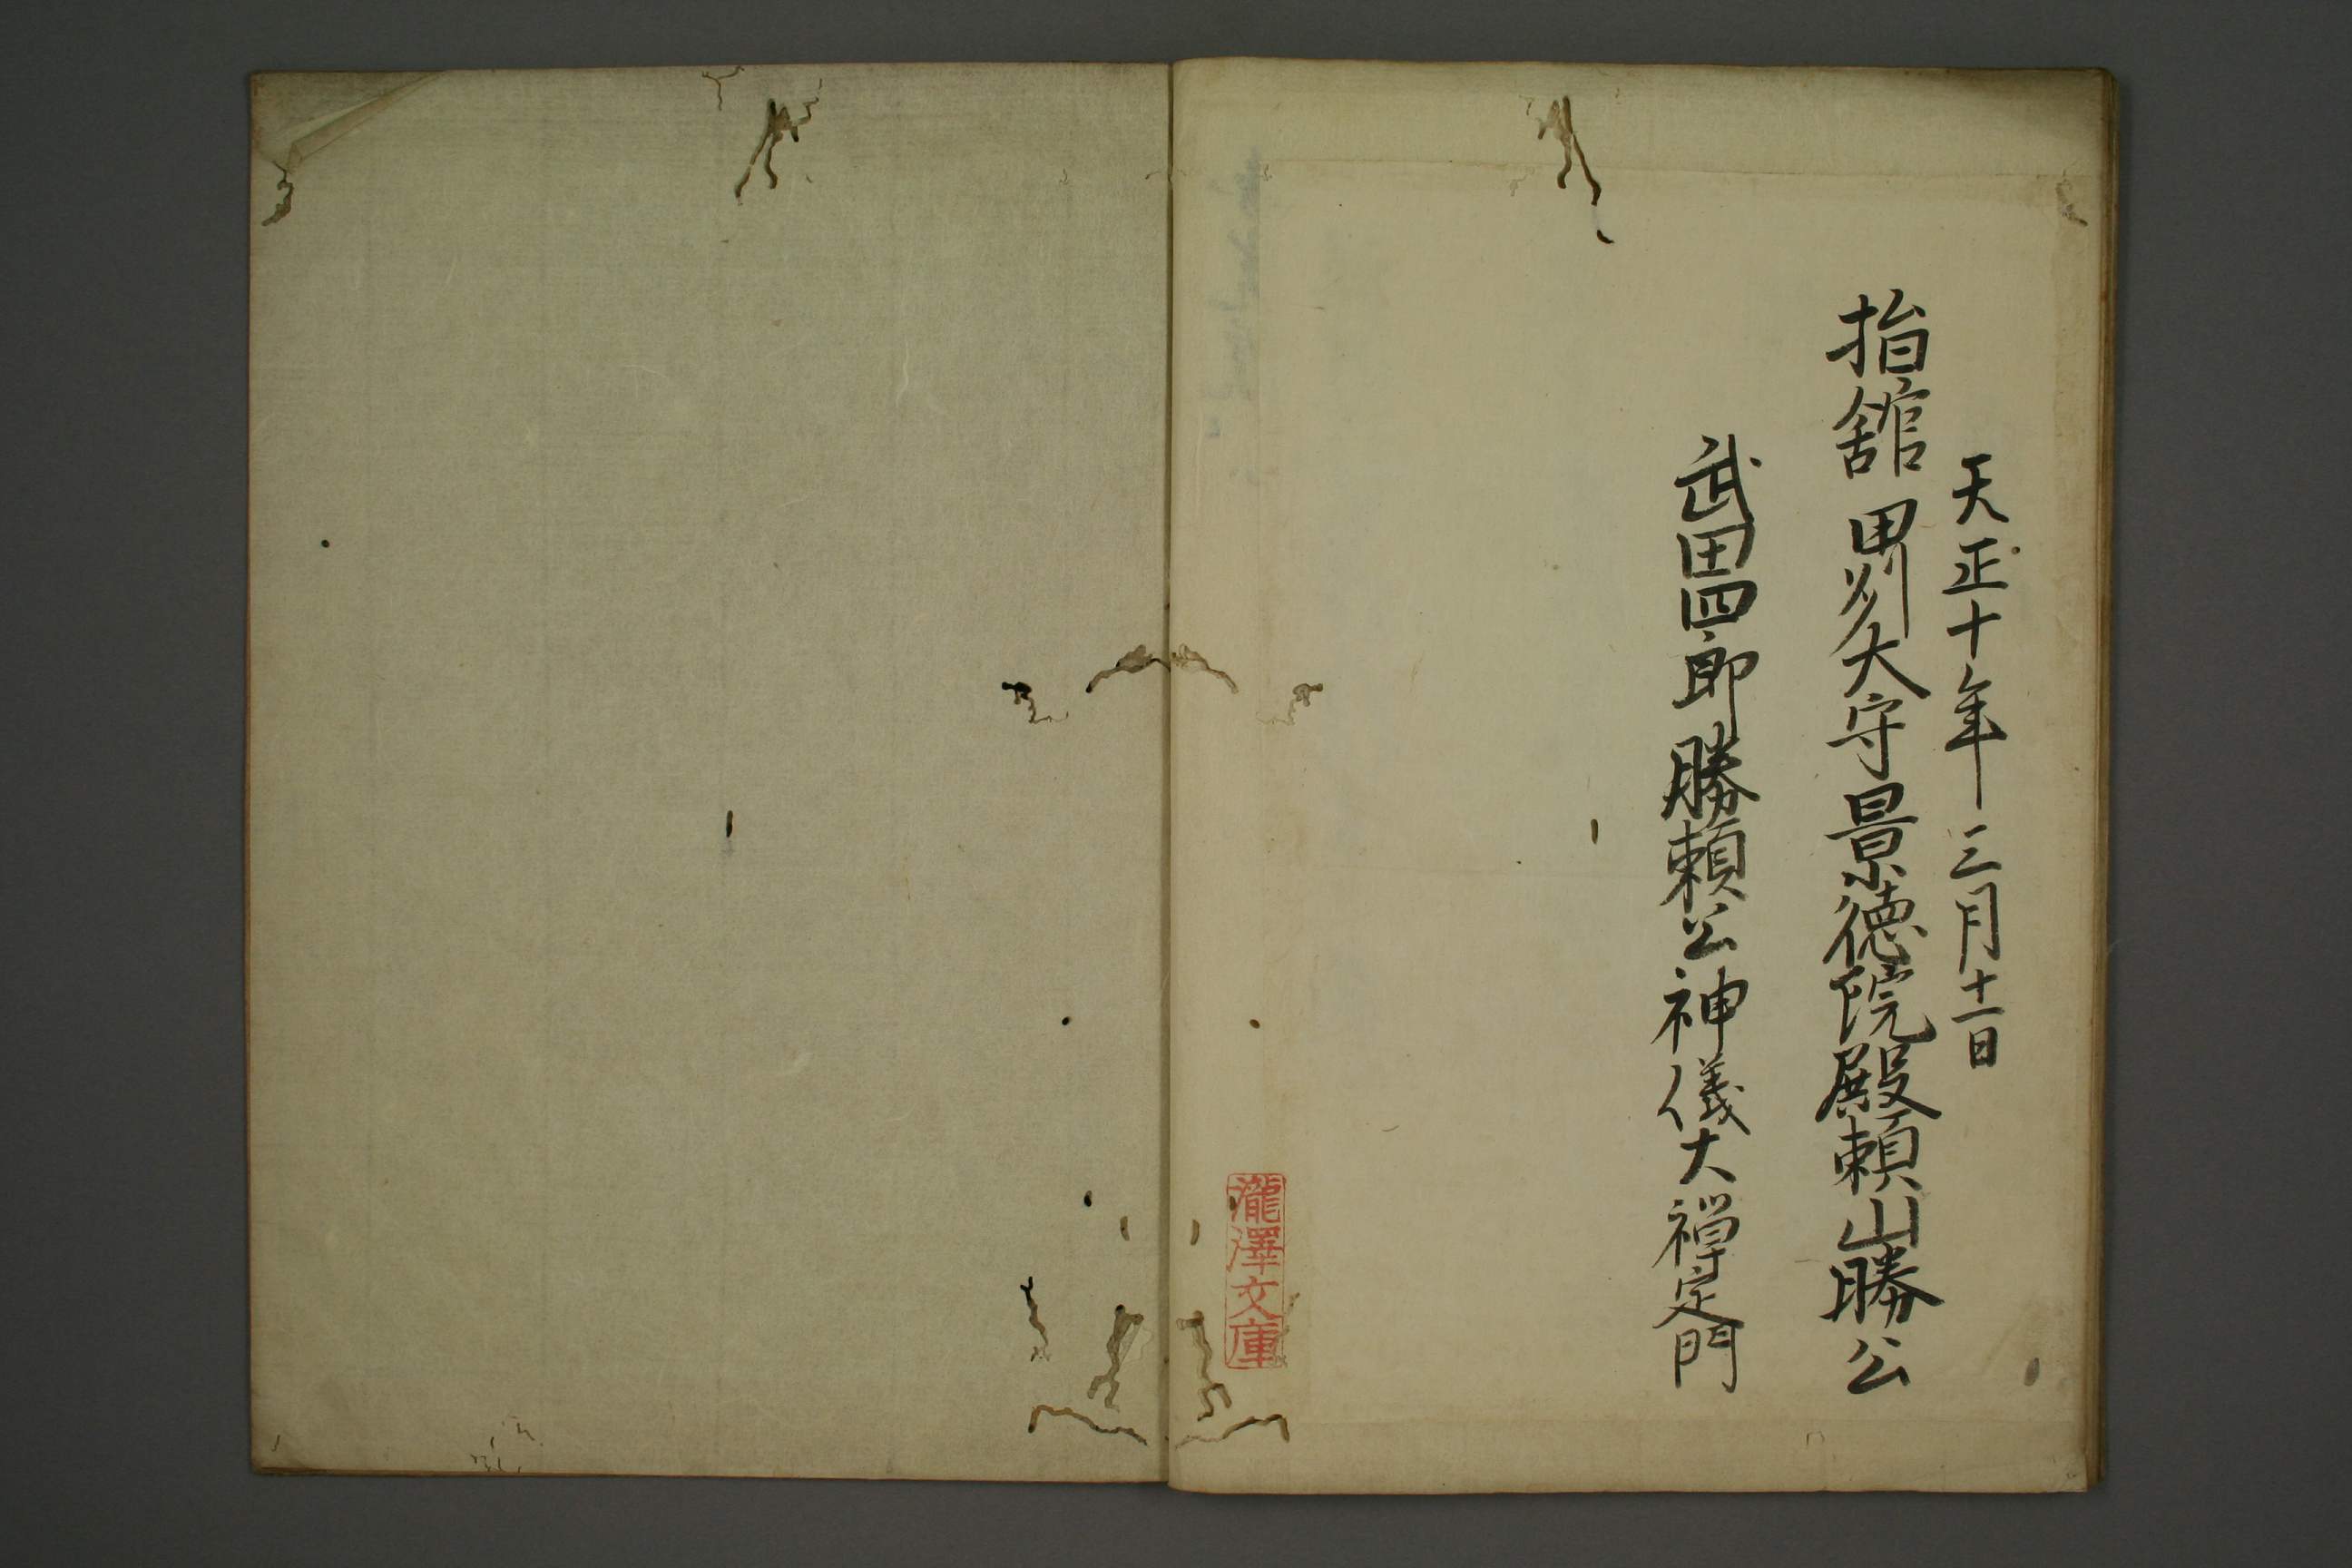 天正十年三月十一日
指舘甲州大守景徳院殿頼山勝公
武田四郎勝頼公神儀大禅定門
瀧澤文庫